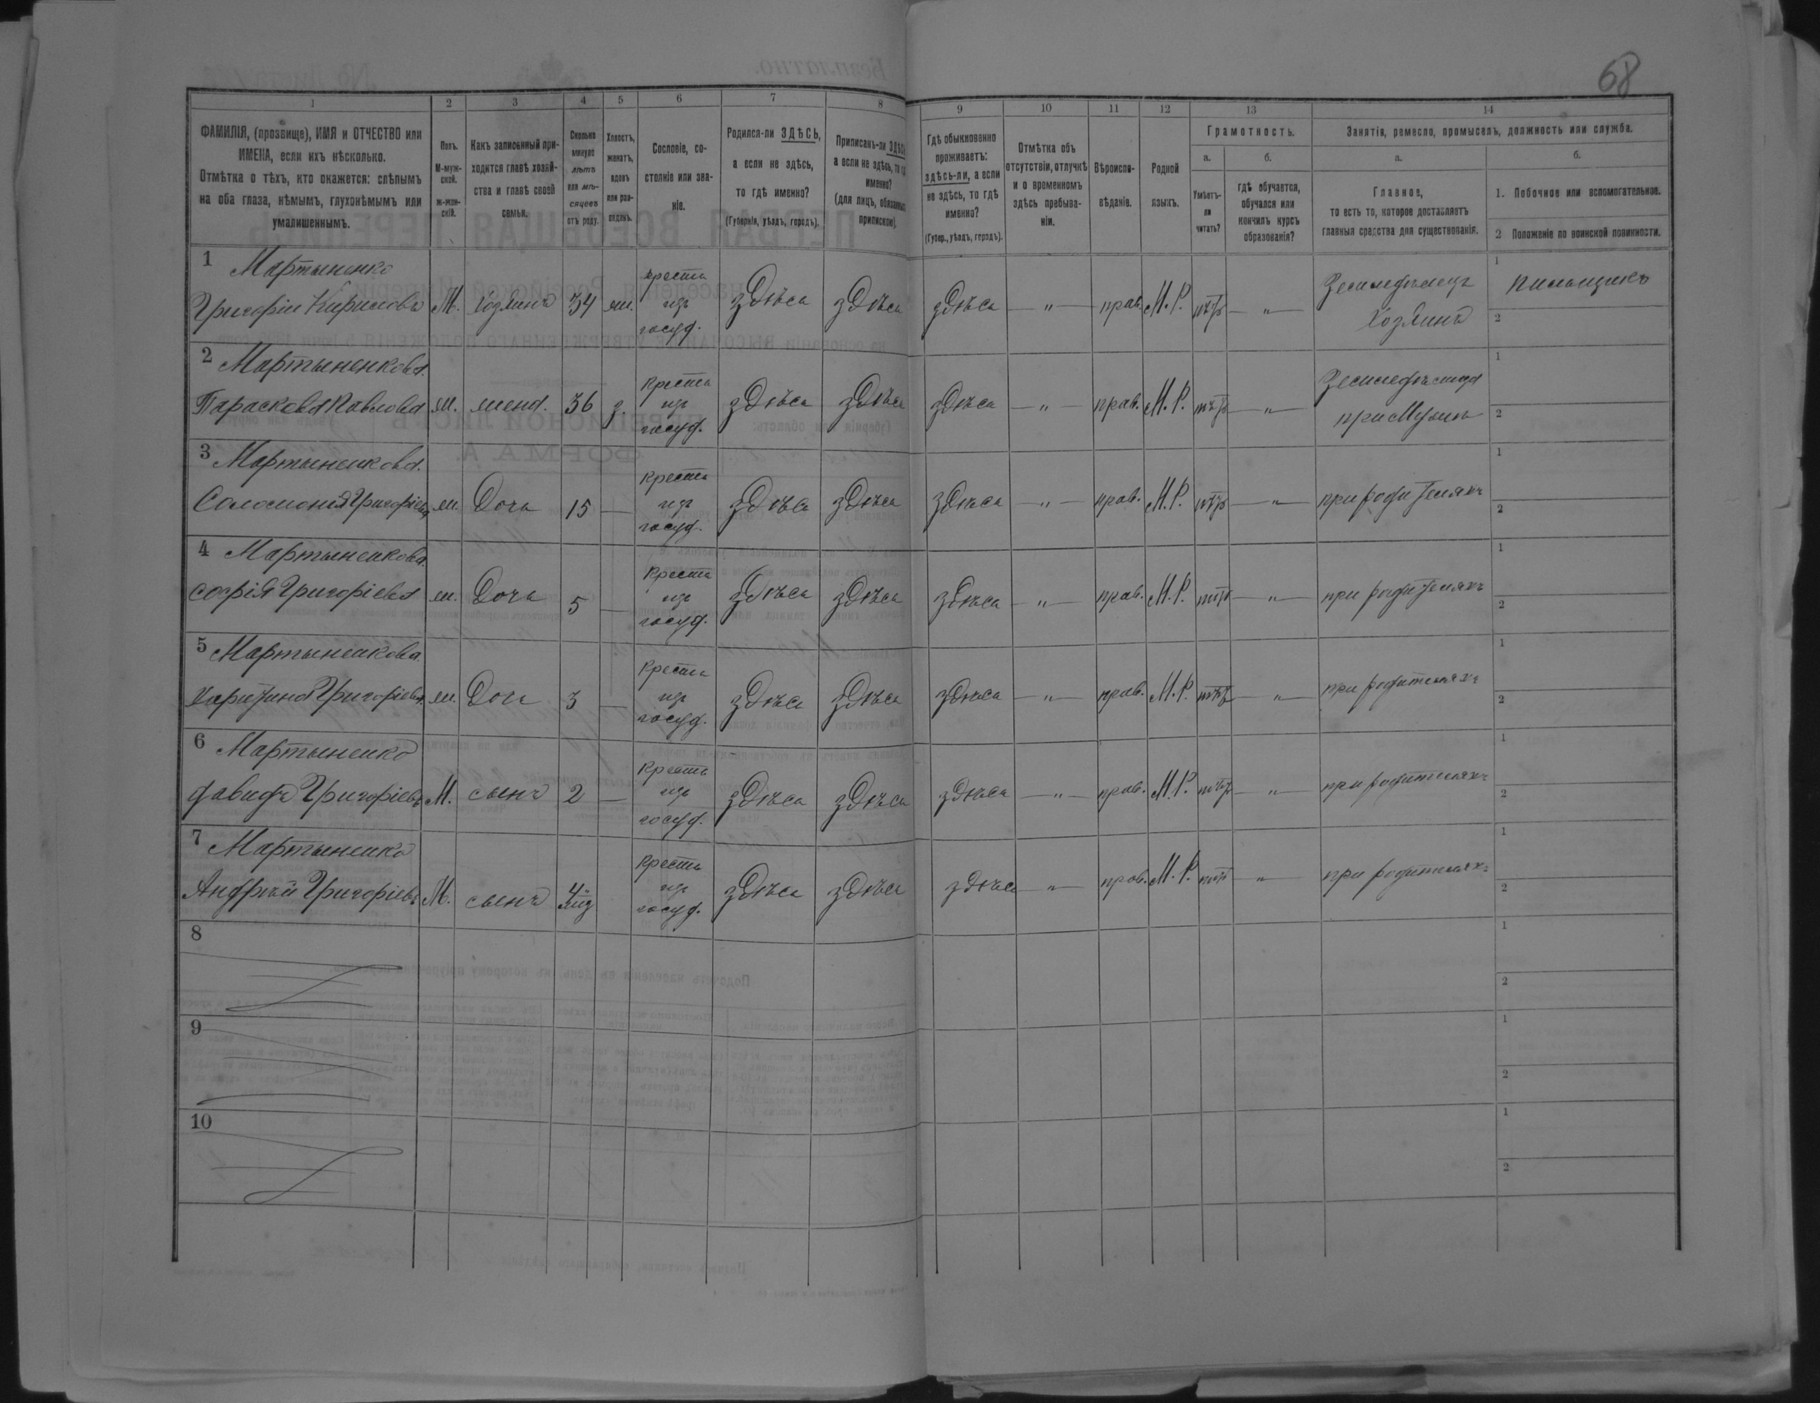 68
1 2 3 4 5 6 7 8 9 10 11 12 13 14
ФАМИЛІЯ, (прозвище), ИМЯ и ОТЧЕСТВО или
ИМЕНА, если ихъ нѣсколько.
Отмѣтка о тѣхъ, кто окажется: слѣпымъ
на оба глаза, нѣмымъ, глухонѣмымъ или
умалишеннымъ.
Полъ.
М-муж-
ской.
ж-жен-
скій.
Какъ записанный при-
ходится главѣ хозяй-
ства и главѣ своей
семьи.
Сколько
минуло
лѣтъ
или мѣ-
сяцевъ
отъ роду.
Холостъ,
женатъ,
вдовъ
или раз-
веденъ.
Сословіе, со-
стояніе или зва-
ніе.
Родился-ли ЗДѢСЬ,
а если не здѣсь,
то гдѣ именно?
(Губернія, уѣздъ, городъ).
Приписанъ-ли ЗДѢСЬ,
а если не здѣсь, то гдѣ
именно?
(для лицъ, обязанныхъ
припискою).
Гдѣ обыкновенно
проживаетъ:
здѣсь-ли, а если
не здѣсь, то гдѣ
именно?
(Губер., уѣздъ, городъ).
Отмѣтка объ
отсутствіи, отлучкѣ
и о временномъ
здѣсь пребыва-
ніи.
Вѣроиспо-
вѣданіе.
Родной
языкъ.
Грамотность.
а. б.
Умѣетъ-
ли
читать?
гдѣ обучается,
обучался или
кончилъ курсъ
образованія?
Занятія, ремесло, промыселъ, должность или служба.
а. б.
Главное,
то есть то, которое доставляетъ
главныя средства для существованія.
1. Побочное или вспомогательное.
2 Положеніе по воинской повинности.
1 Мартыненко
Григорій Кириловъ М. хозяинъ 34 ж. крестья из госуд. здѣсь здѣсь здѣсь — „ — прав. М. Р. нѣтъ — „ — Земледѣлецъ Хозяинъ 1 пильщикъ 2
2 Мартыненкова
Параскова Павлова ж. жена. 36 з. крестья из госуд. здѣсь здѣсь здѣсь — „ — прав. М. Р. нѣтъ — „ — при Мужѣ 1 2
3 Мартыненкова
Соломонія Григоріева ж. Дочь 15 — крестья из госуд. здѣсь здѣсь здѣсь — „ — прав. М. Р. нѣтъ — „ — при родителяхъ 1 2
4 Мартыненкова
софія Григоріева ж. Дочь 5 — крестья из госуд. здѣсь здѣсь здѣсь — „ — прав. М. Р. нѣтъ — „ — при родителяхъ 1 2
5 Мартыненкова
Харитина Григоріева ж. Доч 3 — крестья из госуд. здѣсь здѣсь здѣсь — „ — прав. М. Р. нѣтъ — „ — при родителяхъ 1 2
6 Мартыненко
давидъ Григоріевъ М. сынъ 2 — крестья из госуд. здѣсь здѣсь здѣсь — „ — прав. М. Р. нѣтъ — „ — при родителяхъ 1 2
7 Мартыненко
Андрей Григоріевъ М. сынъ 4 крестья из госуд. здѣсь здѣсь здѣсь — „ — прав. М. Р. нѣтъ „ — при родителяхъ 1 2
8 1 2
9 1 2
10 1 2